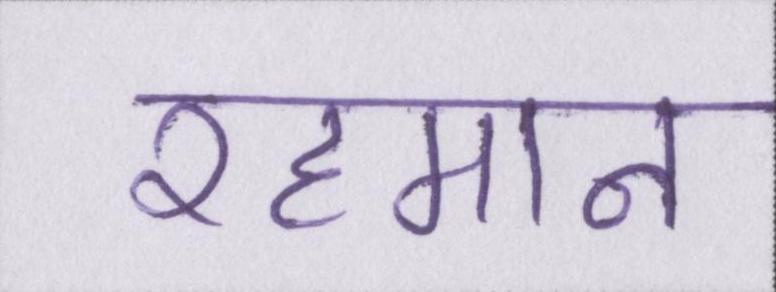 रहमान